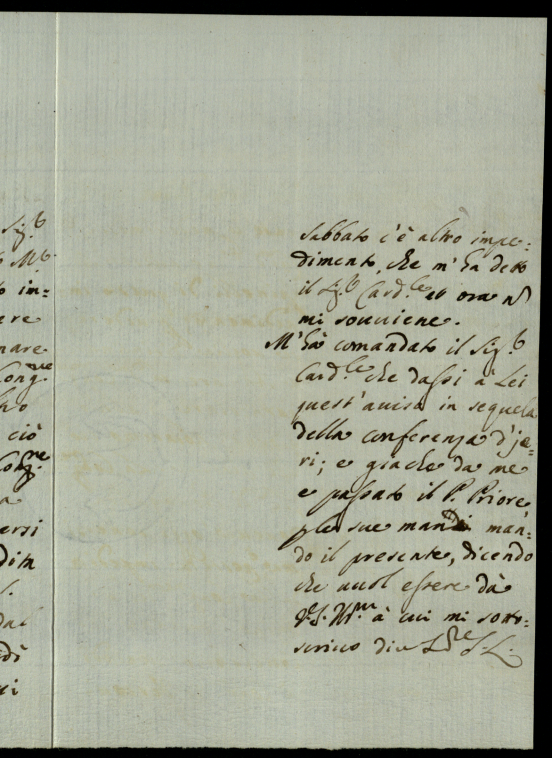 Sig.r
M.r
in=
ere
nare
Cong.ne
tro
ciò
Cong.ne
a
ersi
dim
dal
edì
ui
sabbato c'è altro impe=
dimento, che m'ha detto
il Sig.r Card.le et ora n
mi souuiene.
M'hà comandato il Sig.r
Card.le che dassi à Lei
quest'auiso in sequela
della conferenza d'je=
ri; e giache da me
e passato il P. Priore
per sue mani man=
do il presente, dicendo
che uuol essere dà
V.S. Ill.ma à cui mi sotto=
scriuo di